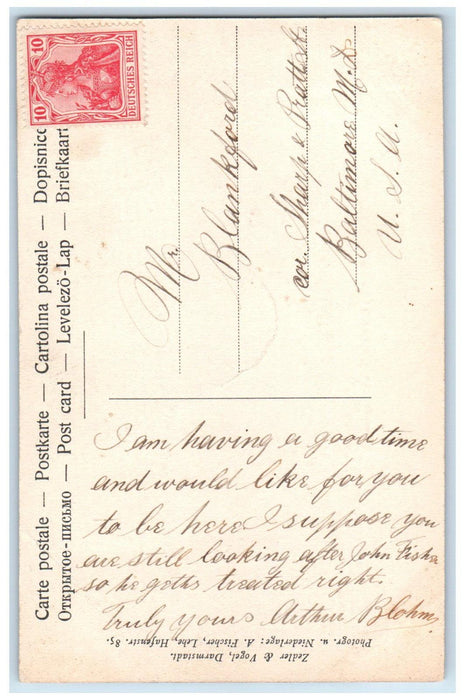 10
10
DEUTSCHES REICH
Carte postale — Postkarte — Cartolina postale — Dopisnice
Открытое-письмо — Post card — Levelező-Lap — Briefkaart
Mr.
Blankford
cor Sharp & Pratt St
Baltimore M.D
U.S.A.
I am having a good time
and would like for you
to be here I suppose you
are still looking after John Fisher
so he geths treated right.
Truly yours Arthur Blohm,
Zedler & Vogel, Darmstadt.
Photogr. u. Niederlage: A. Fischer, Lehe, Hafenstr. 85.